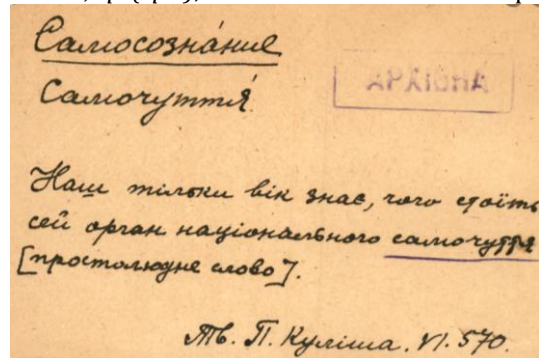 Самосозна́ние
Самочуття́
АРХІВНА
Наш тільки вік знає, чого стоїть
сей орган національного самочуття
[простолюдне слово].
Тв. П. Куліша. VI. 570.